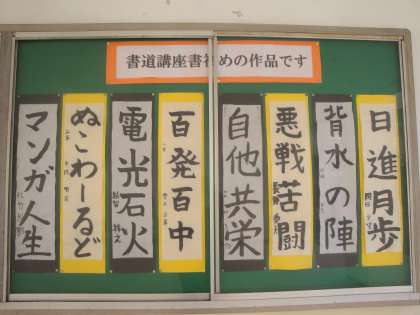 書道講座書初めの作品です
日進月歩
背水の陣
悪戦苦闘
自他共栄
百発百中
電光石火
ぬこわーるど
マンガ人生